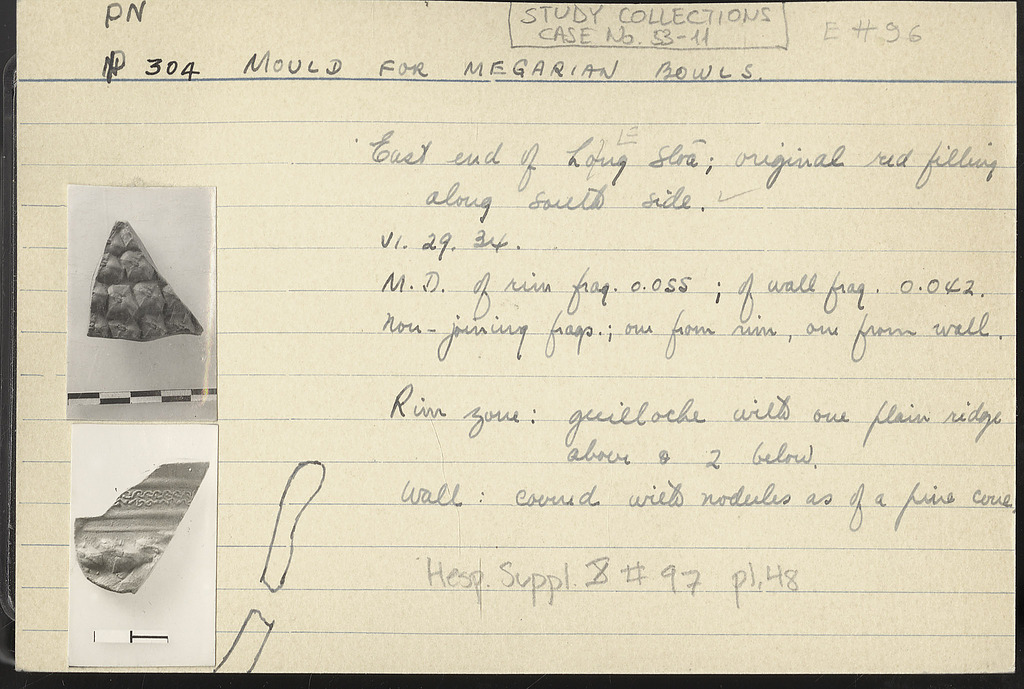 PN
STUDY COLLECTIONS
CASE No. 53-11
E #96
P 304 MOULD FOR MEGARIAN BOWLS.
East end of Long Stoa; original red filling
along south side.
VI. 29. 34.
M.D. of rim frag. 0.055; of wall frag. 0.042.
Non-joining frags.; one from rim, one from wall.
Rim zone: guilloche with one plain ridge
above & 2 below.
Wall: covered with nodules as of a pine cone.
Hesp. Suppl. X #97 pl. 48